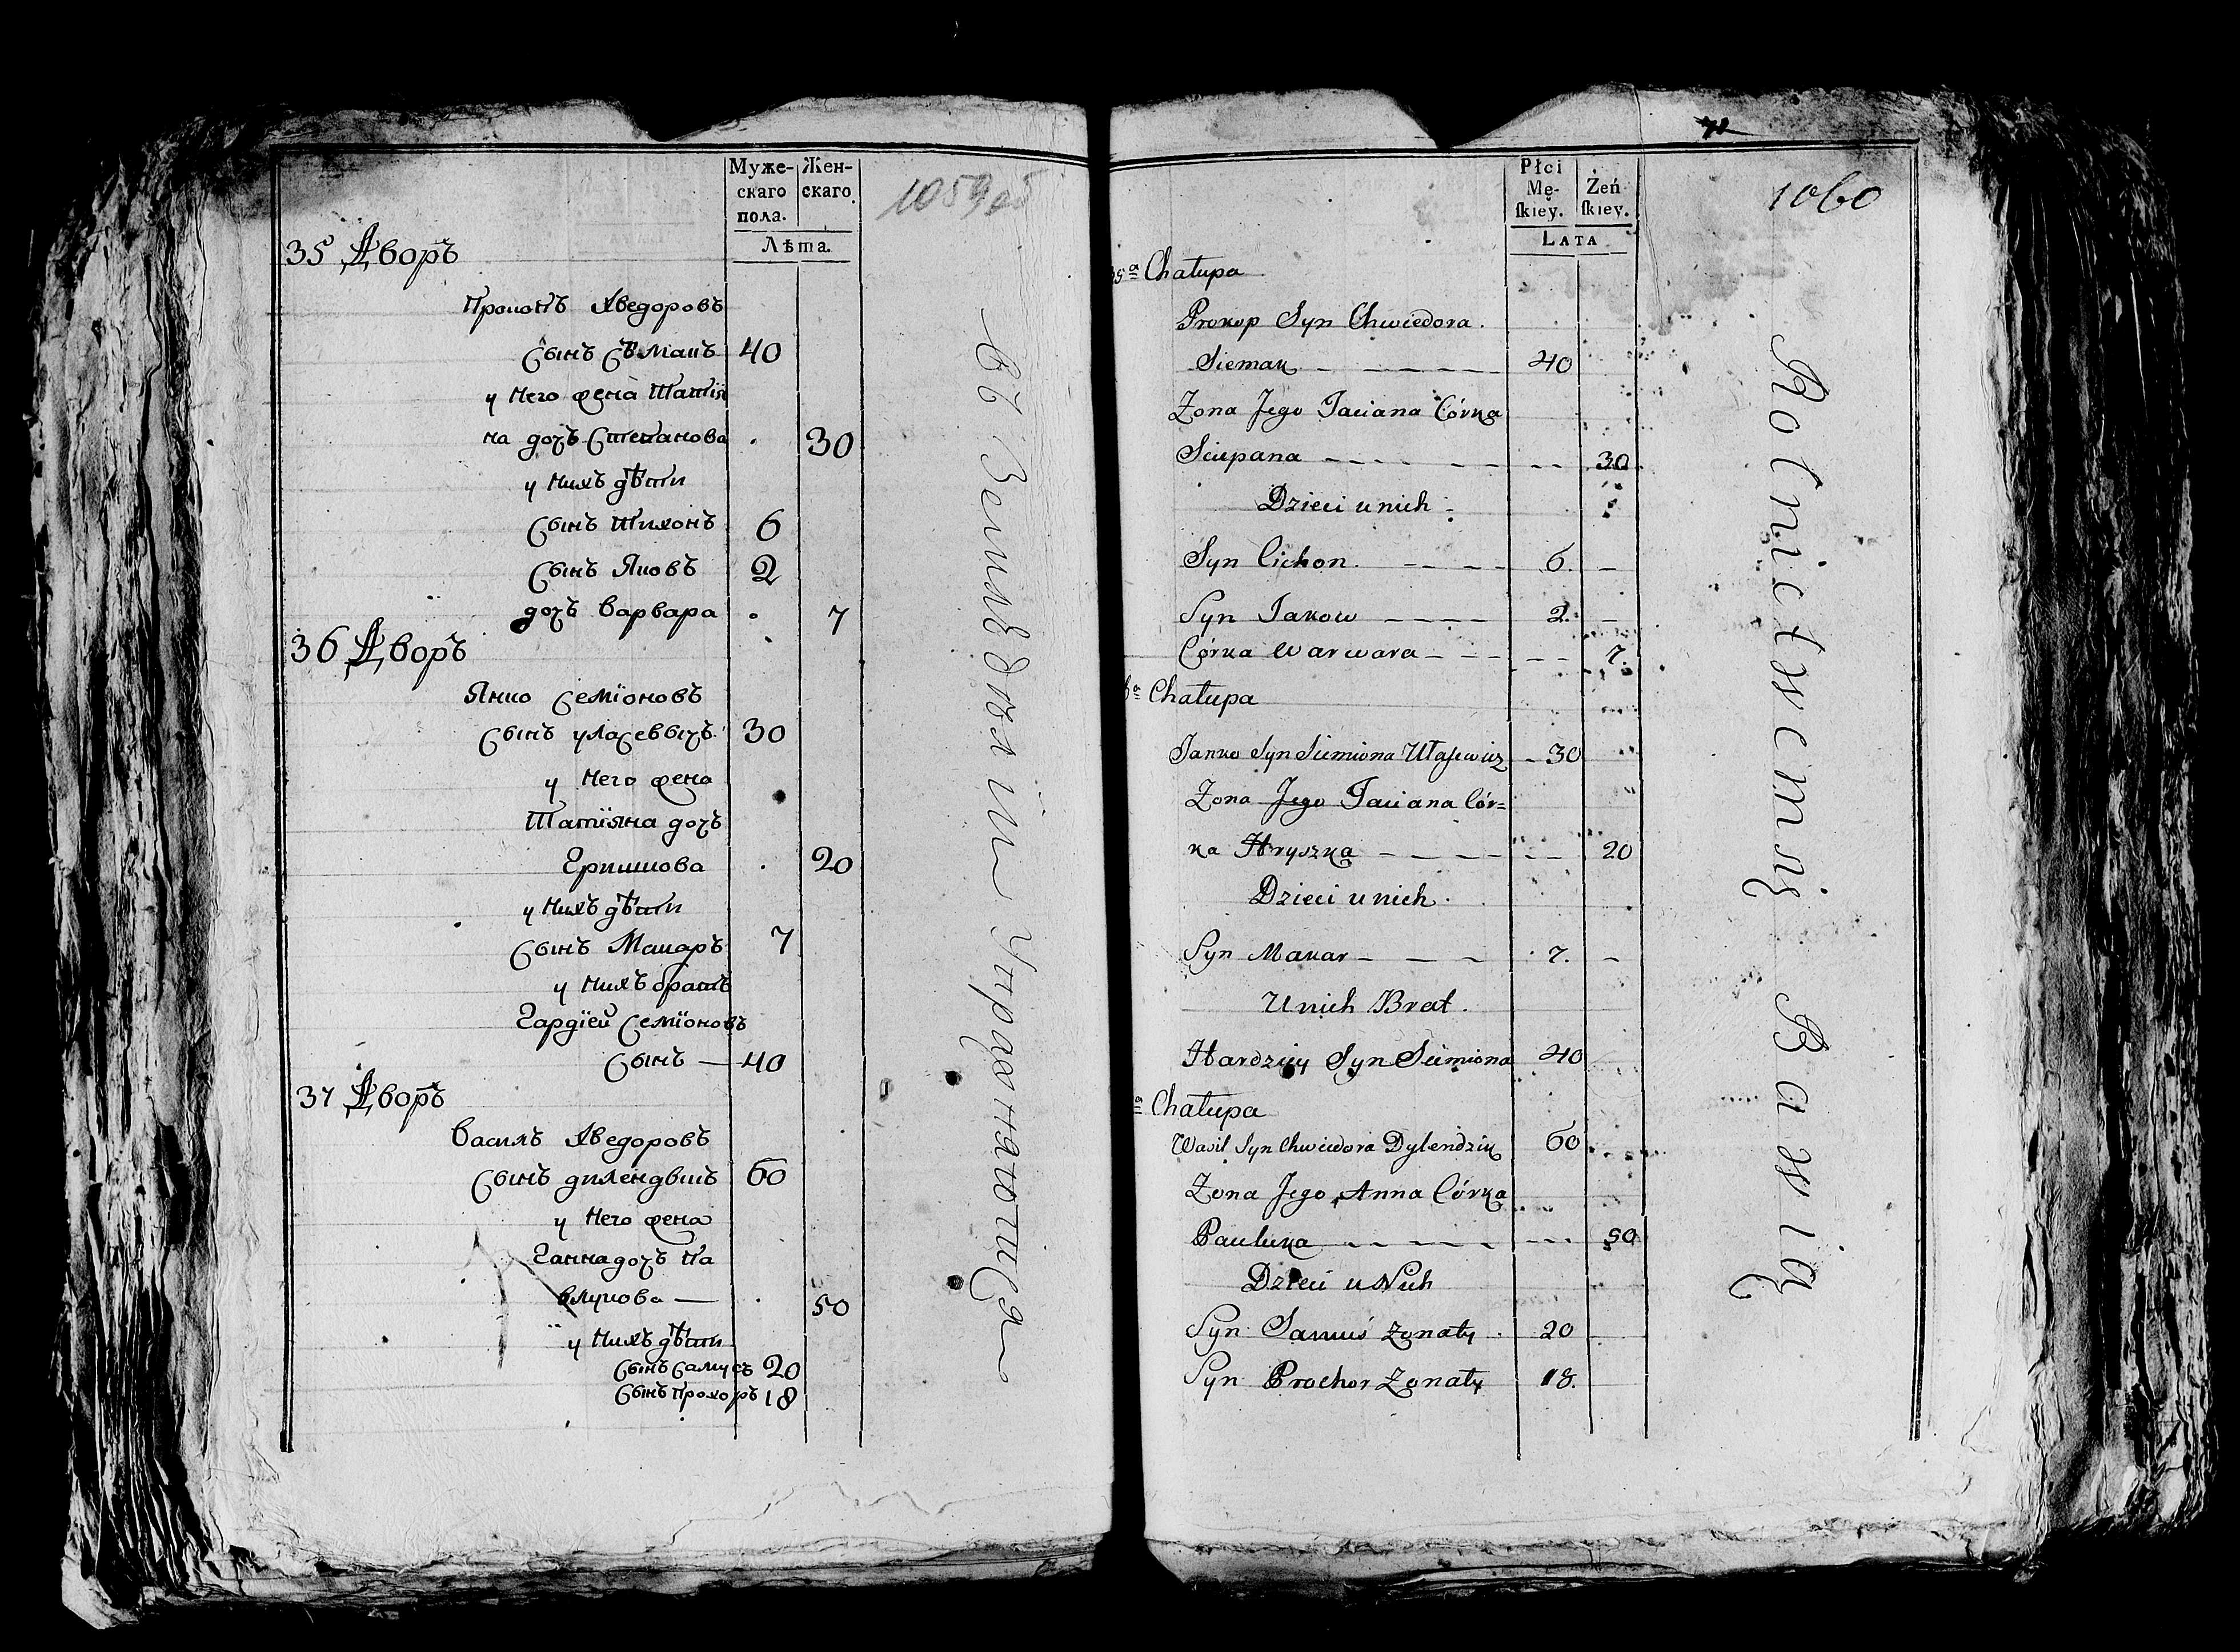 Муже-
скаго
пола.
Жен-
скаго.
Лѣта.
1059об
35 Дворъ
Прокопъ Хведоровъ
Сынъ Сѣмакъ 40
у Него жена Татїя
на дочъ Степанова . 30
у Нихъ дѣти
Сынъ Тихонъ 6
Сынъ Яковъ 2
дочъ Варвара . 7
36 Дворъ
Янко Семїоновъ
Сынъ уласеввычъ 30
у Него жена
Татїяна дочъ
Гришкова . 20
у Нихъ дѣти
Сынъ Макаръ 7
у Нихъ братъ
Гардїей Семїоновъ
Сынъ — 40
37 Дворъ
Василь Хведоровъ
Сынъ дилендвикъ 60
у Него жена
Ганна дочъ Па
влукова — . 50
у Нихъ дѣти
Сынъ Самусъ 20
Сынъ Прохоръ 18
въ Земледѣлїи Упражняютися
Płci
Mę-
skiey.
Żeń
skiey.
LATA
1060
35ª Chałupa
Prokop Syn Chwiedora.
Siemak 40
Zona Jego Taciana Córka
Sciepana 30
Dzieci u nich
Syn Cichon 6.
Syn Jakow 2.
Córka Warwara 7.
6ª Chałupa
Janko Syn Siemiona Ułasewicz 30
Zona Jego Taciana Cór=
ka Hryszka 20
Dzieci u nich.
Syn Makar 7.
U nich Brat.
Hardziey Syn Siemiona 40
ª Chałupa
Wasil Syn Chwiedora Dylendzik 60
Zona Jego Anna Córka
Pauluka 50
Dzieci u Nich
Syn Samuś Zonaty. 20
Syn Prochor Zonaty 18.
Rolnictwem się Bawią